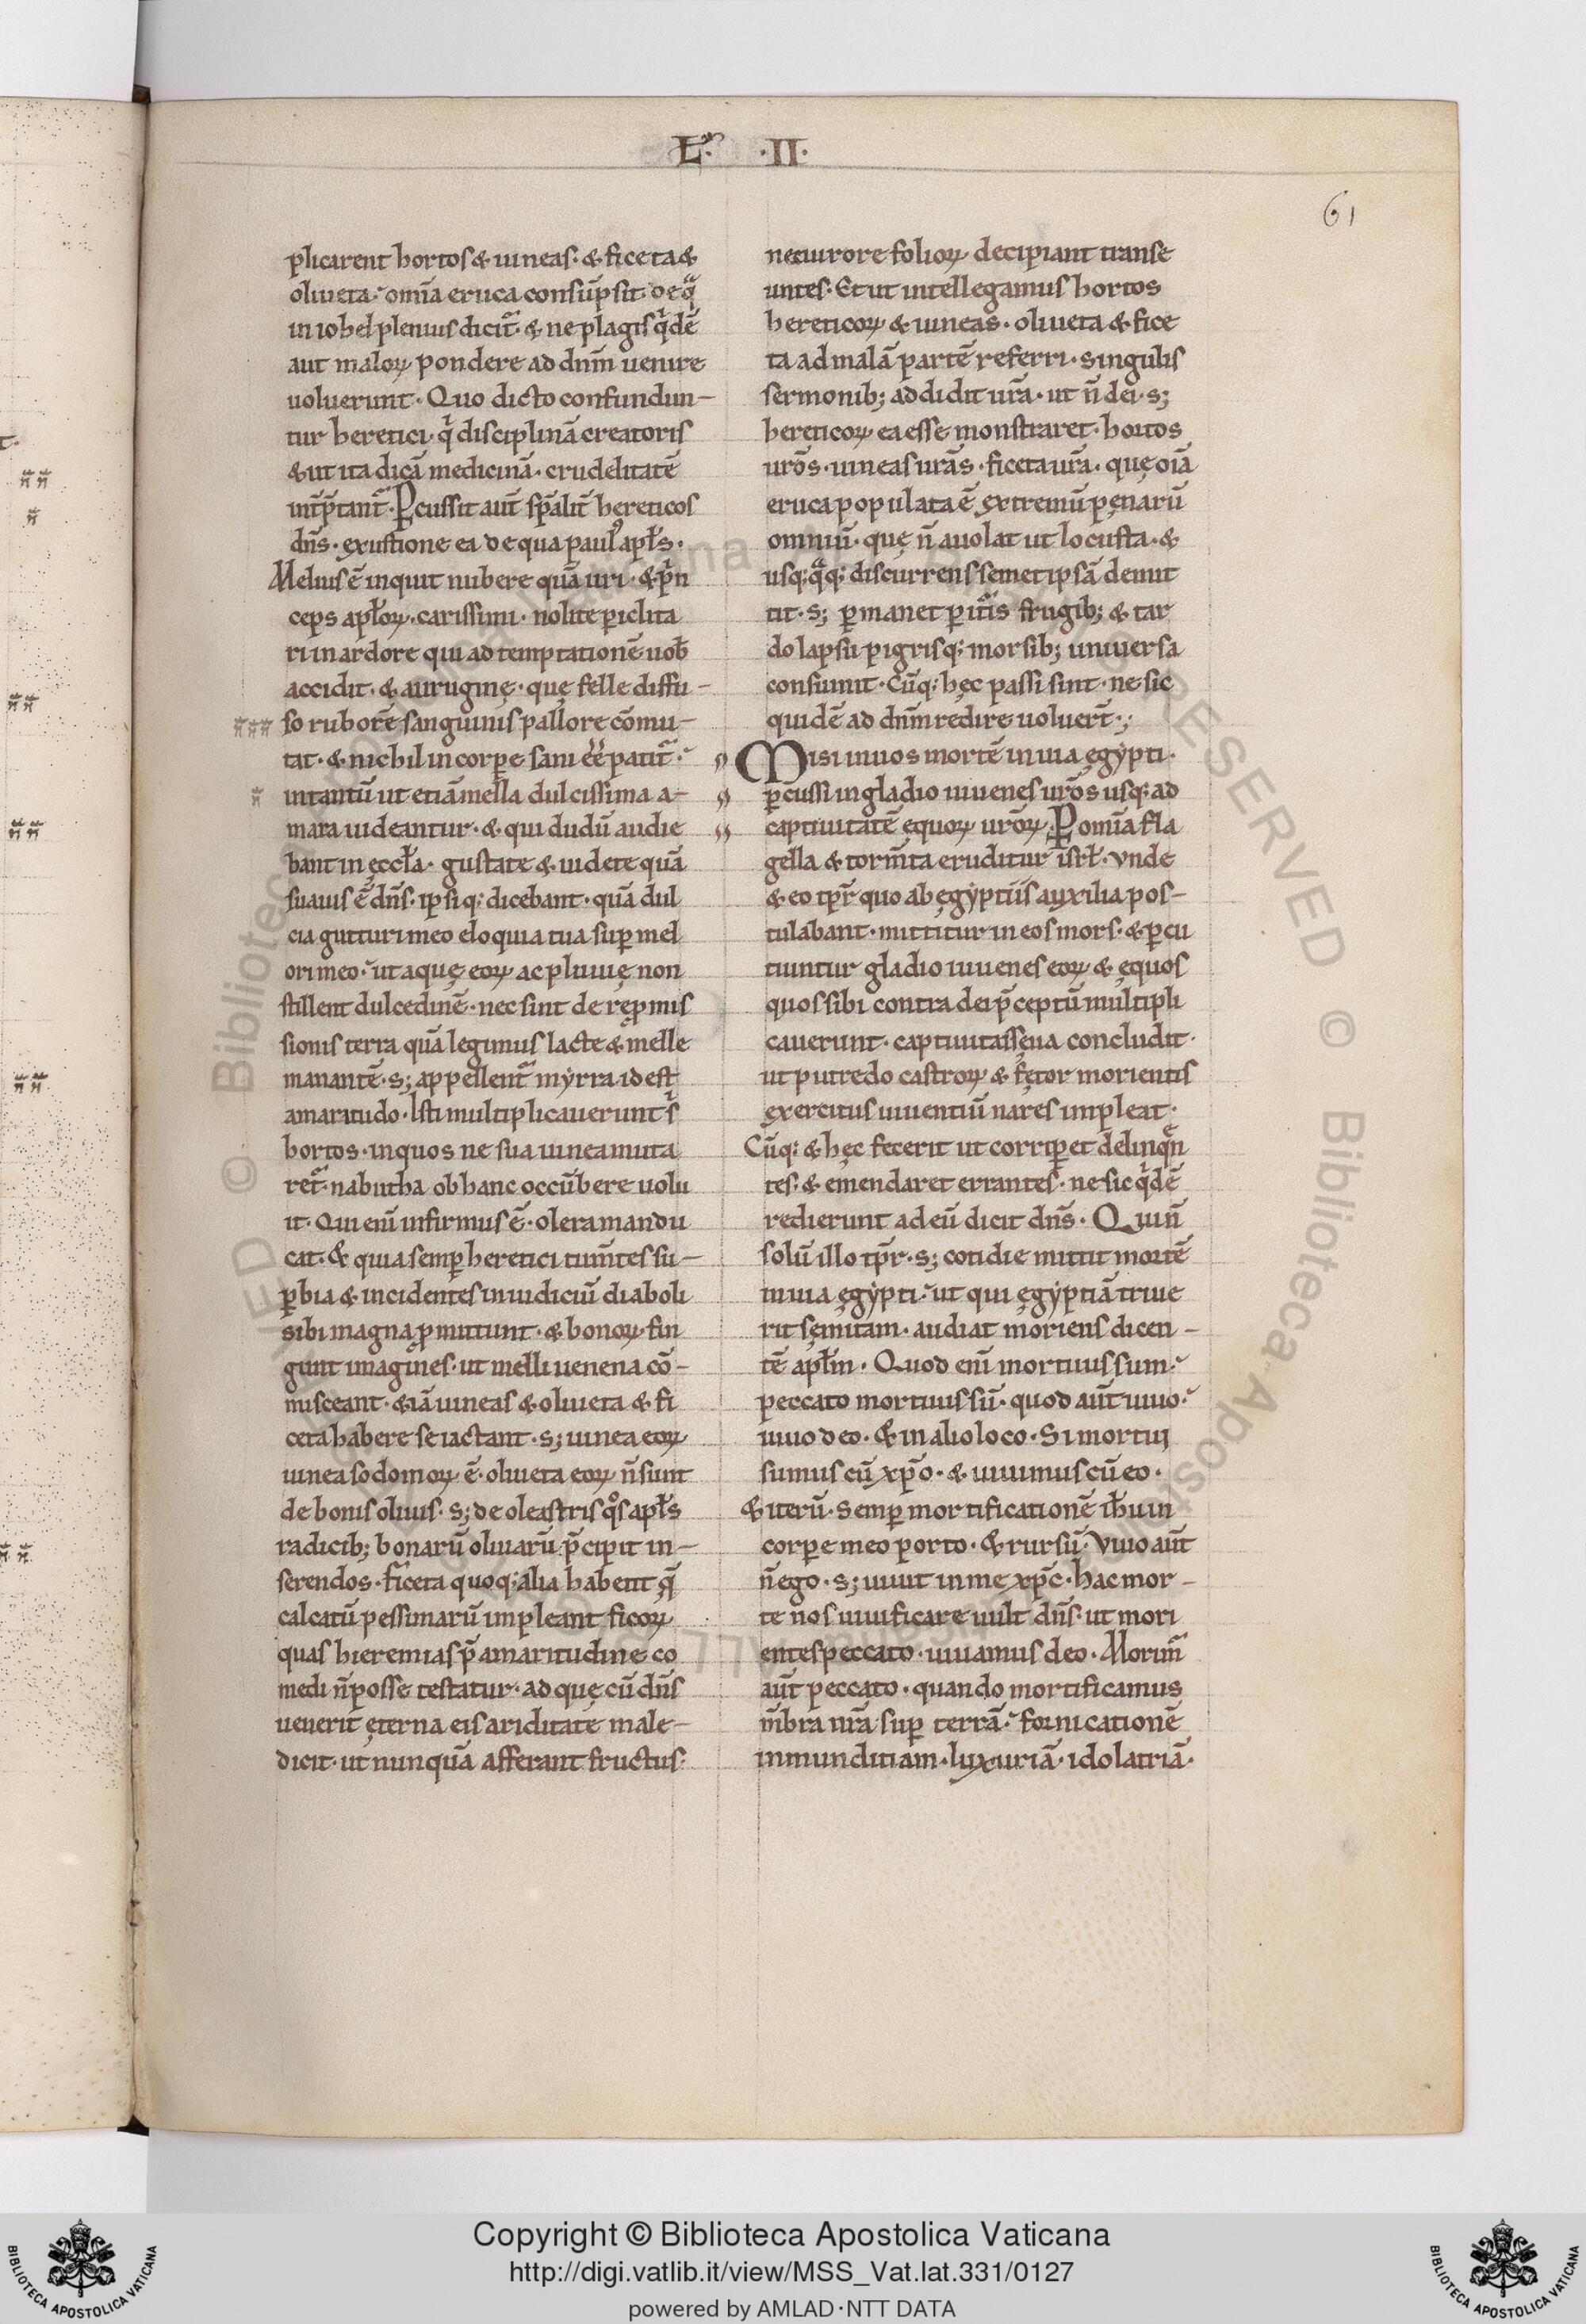 Lͬ. ·II·
61
plicarent hortos & uineas· & ficeta &
oliueta· om̅ia eruca consu̅psit· de qᵃ
in iohel plenius dicit̃· & ne plagis qⁱde̅
aut maloꝝ pondere ad dn̅m uenire
uoluerunt· Quo dicto confundun-
tur heretici· qⁱ disciplina̅ creatoris
& ut ita dica̅ medicina̅· crudelitate̅
int̅p̅tant̃· Ꝑcussit aut̅ sp̅alit̅ hereticos
dn̅s· exustione ea de qua paulꝰ apl̅s·
Melius e̅ inquit nubere qua̅ uri· & pⁱn
ceps apl̅oꝝ· carissimi· nolite periclita
ri in ardore qui ad temptatione̅ uob̅
accidit· & aurugine· quę felle diffu-
so rubore̅ sanguinis pallore co̅mu-
tat· & nichil in corꝑe sani e̅e̅ patit̃·
intantu̅ ut etia̅ mella dulcissima a-
mara uideantur· & qui dudu̅ audie
bant in ęccl̅a· gustate & uidete qua̅
suauis e̅ dn̅s· ipsiq; dicebant· qua̅ dul
cia gutturi meo eloquia tua suꝑ mel
ori meo· ut aquę eoꝝ ac pluuię non
stillent dulcedine̅· nec sint de reꝓmis
sionis terra qua̅ legimus lacte & melle
manante̅· s; appellent̃ myrra id est
amaritudo· Isti multiplicauerunt sⁱ
hortos· in quos ne sua uinea muta
ret̃· nabutha ob hanc occu̅bere uolu
it· Qui eni̅ infirmus e̅· olera mandu
cat· & quia semꝑ heretici tum̅tes su-
ꝑbia & incidentes in iudiciu̅ diaboli
sibi magna ꝓmittunt· & bonoꝝ fin
gunt imagines· ut melli uenena co̅-
misceant· & ia̅ uineas & oliueta & fi
ceta habere se iactant· s; uinea eoꝝ
uinea sodomoꝝ e̅· oliueta eoꝝ n̅ sunt
de bonis oliuis· s; de oleastris qᵒs apl̅s
radicib; bonaru̅ oliuaru̅ p̅cipit in-
serendos· ficeta quoq; alia habent q̅
calcatu̅ pessimaru̅ impleant ficoꝝ
quas hieremias p̅ amaritudine co
medi n̅ posse testatur· ad quę cu̅ dn̅s
uenerit ęterna eis ariditate male-
dicit· ut nunqua̅ afferant fructus·
nec uirore folioꝝ decipiant transe
untes· Et ut intellegamus hortos
hereticoꝝ & uineas· oliueta & fice
ta ad mala̅ parte̅ referri· singulis
sermonib; addidit ur̅a· ut n̅ dei· s;
hereticoꝝ ea esse monstraret· hortos
uro̅s· uineas ura̅s· ficeta ur̅a· quę oi̅a
eruca populata e̅ extremu̅ pęnaru̅
omniu̅· quę n̅ auolat ut locusta· &
usq; qᵃq; discurrens semetipsa̅ demit
tit· s; ꝑmanet ꝑit̃is frugib; & tar
do lapsu pigrisq; morsib; uniuersa
consumit· Cu̅q; hęc passi sint· ne sic
quide̅ ad dn̅m redire uoluer̅t·;
Misi in uos morte̅ in uia ęgypti·
ꝑcussi in gladio iuuenes uro̅s usq; ad
captiuitate̅ ęquoꝝ uro̅ꝝ· Ꝑ om̅ia fla
gella & torm̅ta eruditur isr̅l· Vnde
& eo tp̅r quo ab ęgyptiis auxilia pos-
tulabant· mittitur in eos mors· & ꝑcu
tiuntur gladio iuuenes eoꝝ & ęquos
quos sibi contra dei p̅ceptu̅ multipli
cauerunt· captiuitas sęua concludit·
ut putredo castroꝝ & fętor morientis
exercitus uiuentiu̅ nares impleat·
Cu̅q; & hęc fecerit ut corriꝑet delinqe̅n
tes· & emendaret errantes· ne sic qⁱde̅
redierunt ad eu̅ dicit dn̅s· Qui n̅
solu̅ illo tp̅r· s; cotidie mittit morte̅
in uia ęgypti· ut qui ęgyptia̅ triue
rit sęmitam· audiat moriens dicen-
te̅ apl̅m· Quod eni̅ mortuus sum·
peccato mortuus su̅· quod aut̅ uiuo·
uiuo deo· & in alio loco· Si mortui
sumus cu̅ xp̅o· & uiuimus cu̅ eo·
& iteru̅· Semꝑ mortificatione̅ ih̅u in
corꝑe meo porto· & rursu̅· Viuo aut̅
n̅ ego· s; uiuit in me xp̅c· hac mor-
te nos uiuificare uult dn̅s· ut mori
entes peccato· uiuamus deo· Morim̃
aut̅ peccato· quando mortificamus
m̅bra nr̅a suꝑ terra̅· fornicatione̅
inmunditiam· luxuria̅· idolatria̅·
Copyright © Biblioteca Apostolica Vaticana
http://digi.vatlib.it/view/MSS_Vat.lat.331/0127
powered by AMLAD·NTT DATA
BIBLIOTECA APOSTOLICA VATICANA
BIBLIOTECA APOSTOLICA VATICANA